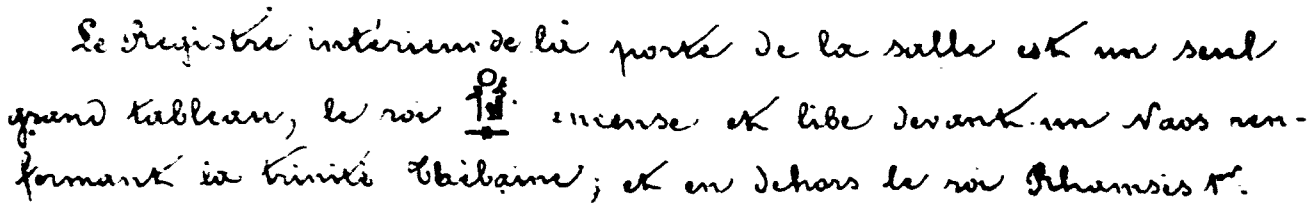 Le Registre intérieur de la porte de la salle est un seul
grand tableau, le roi encense et libe devant un Naos ren-
fermant la trinité Thébaine; et en dehors le roi Rhamsès 1er.